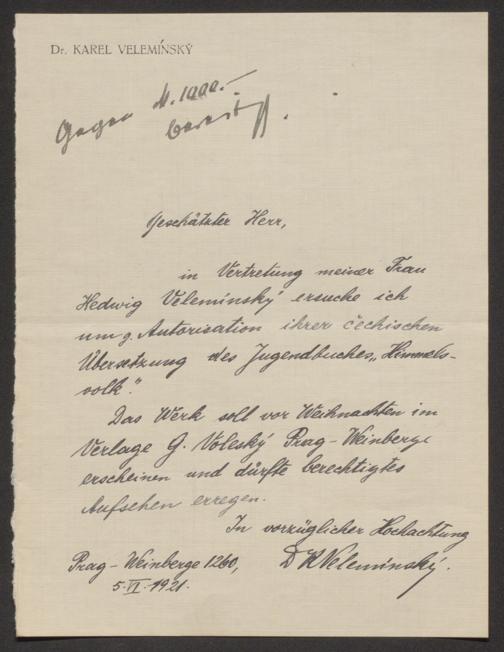 Dr. KAREL VELEMÍNSKÝ
Gegen M. 1000.–
bereit
Geschätzter Herr,
in Vertretung meiner Frau
Hedwig Velemínský ersuche ich
um g. Autorisation ihrer čechischen
Übersetzung des Jugendbuches „Himmels-
volk".
Das Werk soll vor Weihnachten im
Verlage G. Voleský Prag-Weinberge
erscheinen und dürfte berechtigtes
Aufsehen erregen.
In vorzüglicher Hochachtung
Prag-Weinberge 1260, Dr K Velemínský.
5. VI. 1921.